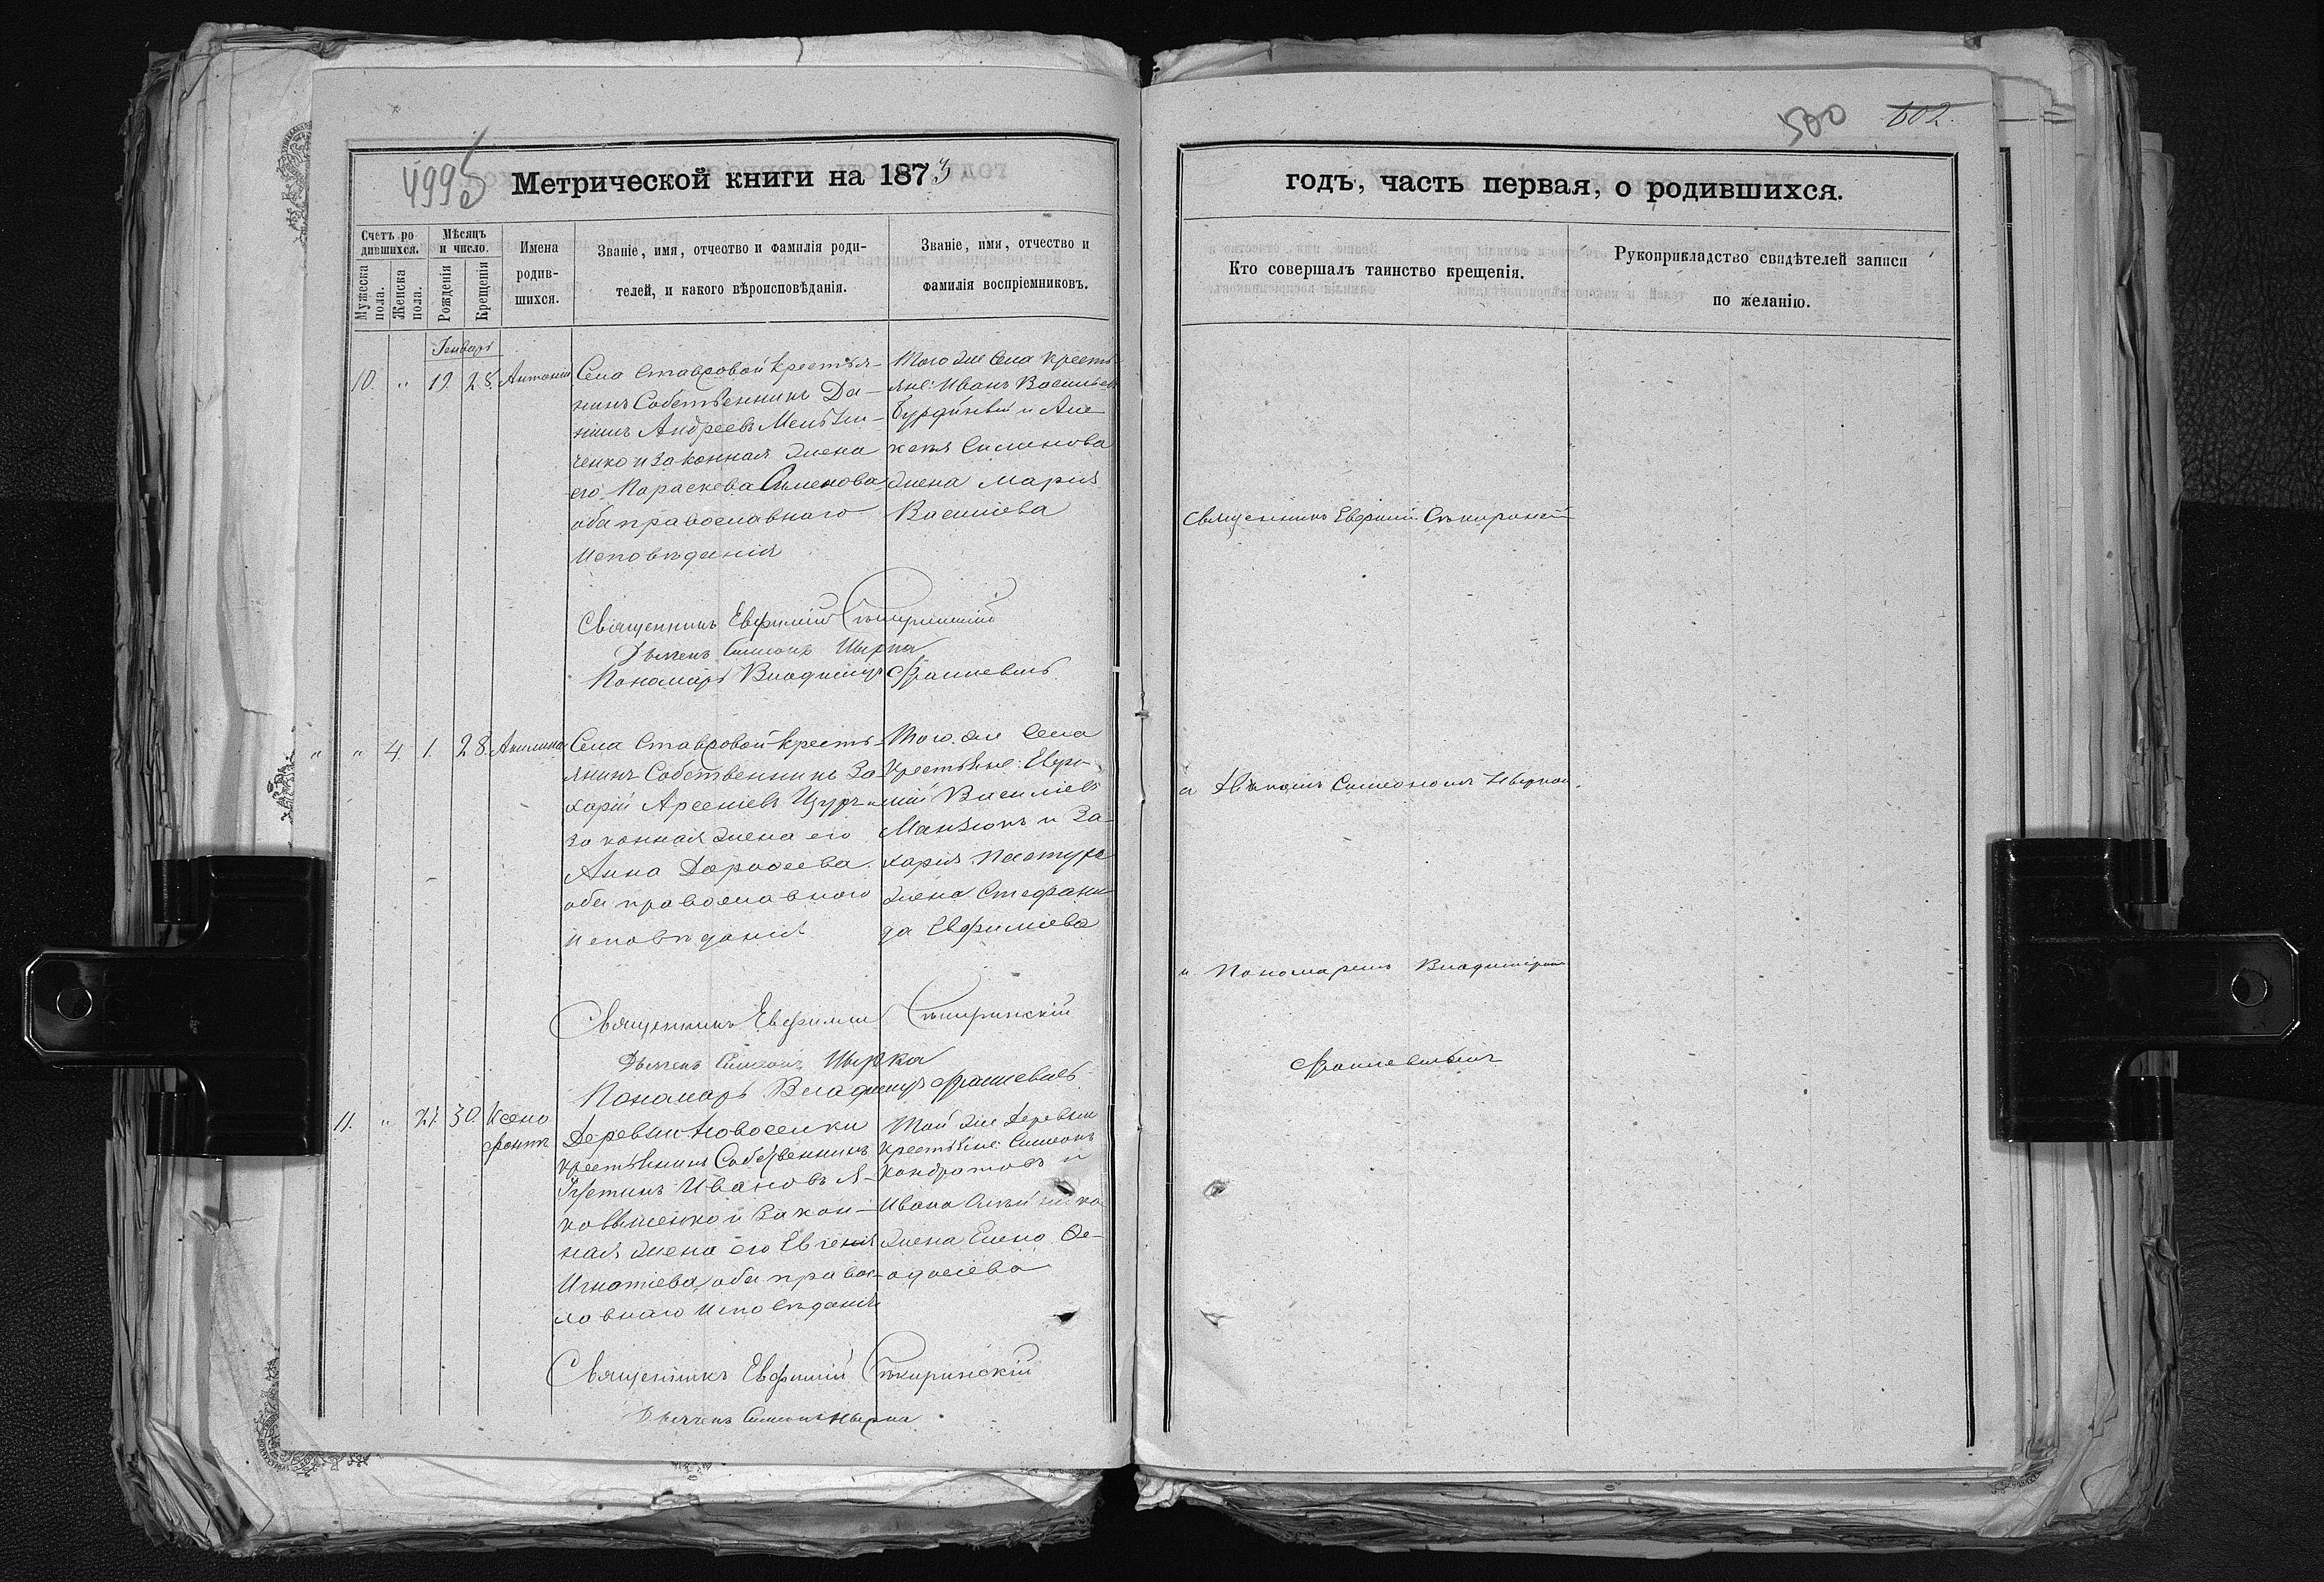 499б
Метрической книги на 1873
Счетъ ро
дившихся.
Мужеска
пола.
Женска
пола.
Мѣсяцъ
и число.
Рожденія
Крещенія
Имена
родив-
шихся.
Званіе, имя, отчество и фамилія роди-
телей, и какого вѣроисповѣданія.
Званіе, имя, отчество и
фамилія воспріемниковъ.
Генварь
10. " 19. 28. Антоній
Села Ставровой крестья-
нинъ Собственникъ Да-
ніилъ Андреевъ
ченко и законная жена
его Параскева Симеонова
оба православнаго
исповѣданія
Того же села кресть-
яне: Иванъ Васильевъ
и Але
жена Марія
Василіева
Священникъ Евфимій Секиринскій
Дьячекъ Симеонъ
Пономарь Владиміръ
" " 4. 1. 28. Акилина
Села Ставровой кресть-
янинъ Собственникъ За-
харій Арсеніевъ и
законная жена его
Анна Дороѳеева
оба православнаго
исповѣданія
Того же села
крестьяне: Евфи-
мій Василіевъ
и За-
харія Пастуха
жена Стефани-
да Евфиміева
Священникъ Евфимій Секиринскій
Дьячекъ Симеонъ
Пономарь Владиміръ
11. " 27. 30. Ксено
фонтъ
Деревни Новоселки
крестьянинъ Собственникъ
Іустинъ Ивановъ Я-
и закон-
ная жена его Евгенія
Игнатіева, оба правос-
лавнаго исповѣданія
Той же деревни
крестьяне: Симеонъ
Кондратовъ и
Ивана
жена Елена Ѳе-
одосіева
Священникъ Евфимій Секиринскій
Дьячекъ Симеонъ
500 602.
годъ, часть первая, о родившихся.
Кто совершалъ таинство крещенія.
Рукоприкладство свидѣтелей записи
по желанію.
Священникъ Евфимій Секиринскій
съ Дьячкомъ Симеономъ
и Пономаремъ Владиміромъ